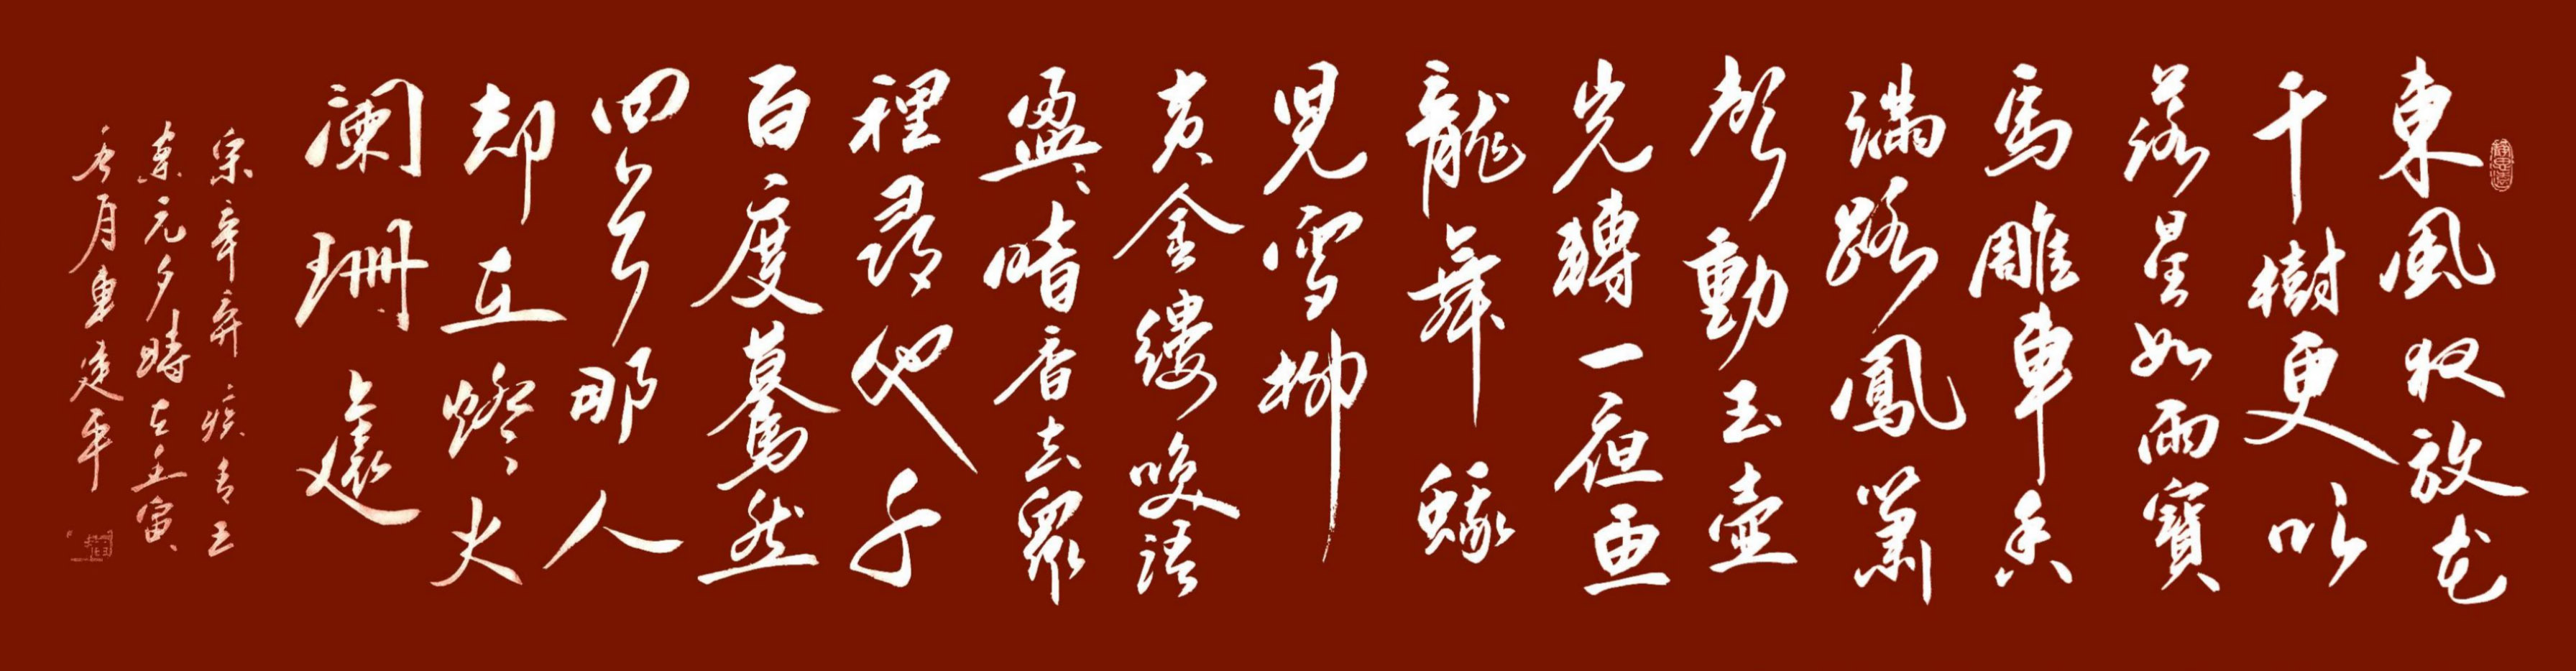 東風夜放花
千樹更吹
落星如雨寶
馬雕車香
滿路鳳簫
聲動玉壺
光轉一夜魚
龍舞蛾
兒雪柳
黃金縷笑語
盈盈暗香去眾
裡尋他千
百度驀然
回首那人
却在燈火
闌珊處
宋辛弃疾青玉
案元夕時在壬寅
春月車建平